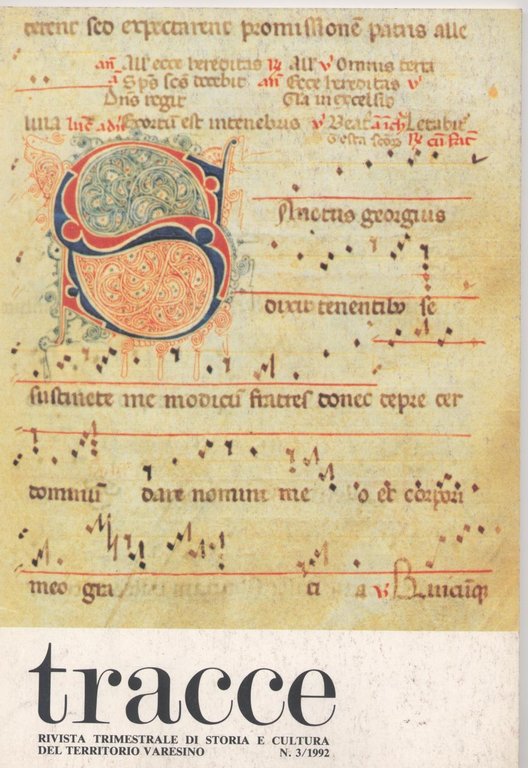 terent sed expectarent promissionē patris alle
an̄ All' ecce hereditas ℟ All' v̄ Omnius terra
Sp̄s sc̄s docebit an̄ Ecce hereditas v̄
Dn̄s regit Gła in excelsis
luia
Exortū est in tenebris v̄ Beat
Sanctus georgius
dixit tenentibꝰ se
sustinete me modicū fratres donec
dominū dare nomini me o et corpori
meo gra ci a v̄
tracce
RIVISTA TRIMESTRALE DI STORIA E CULTURA
DEL TERRITORIO VARESINO N. 3/1992